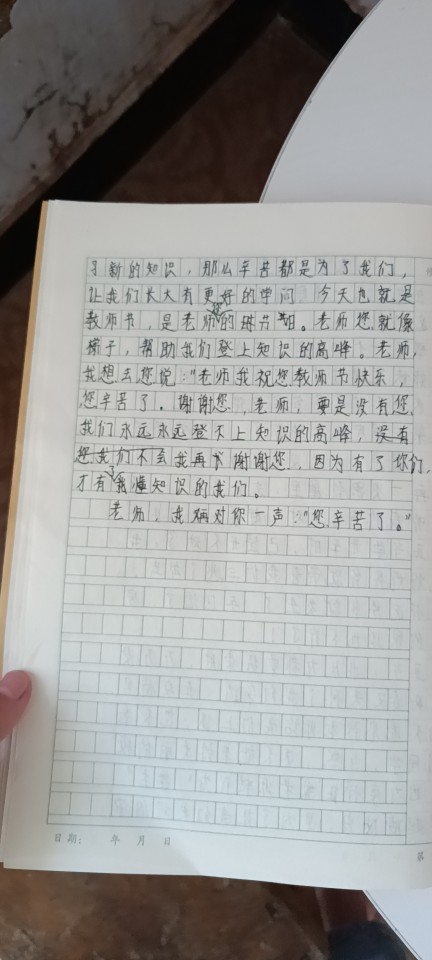 习新的知识，那么辛苦都是为了我们，
让我们长大有更好的学问。今天也就是
教师节，是老师的节日。老师您就像
梯子，帮助我们登上知识的高峰。老师，
我想去您说："老师我祝您教师节快乐，
您辛苦了。谢谢您，老师，要是没有您，
我们永远永远登不上知识的高峰，没有
您我们不会 谢谢您，因为有了你们，
才有了懂知识的我们。
老师，我 对你一声："您辛苦了。"
日期： 年 月 日
第